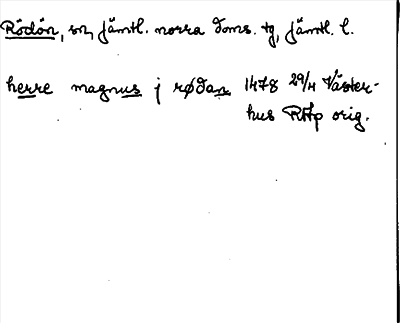 Rödön, sn, Jämtl. norra doms. tg, Jämtl. l.
herre magnus j rødan 1478 29/4 Väster-
hus RAp orig.